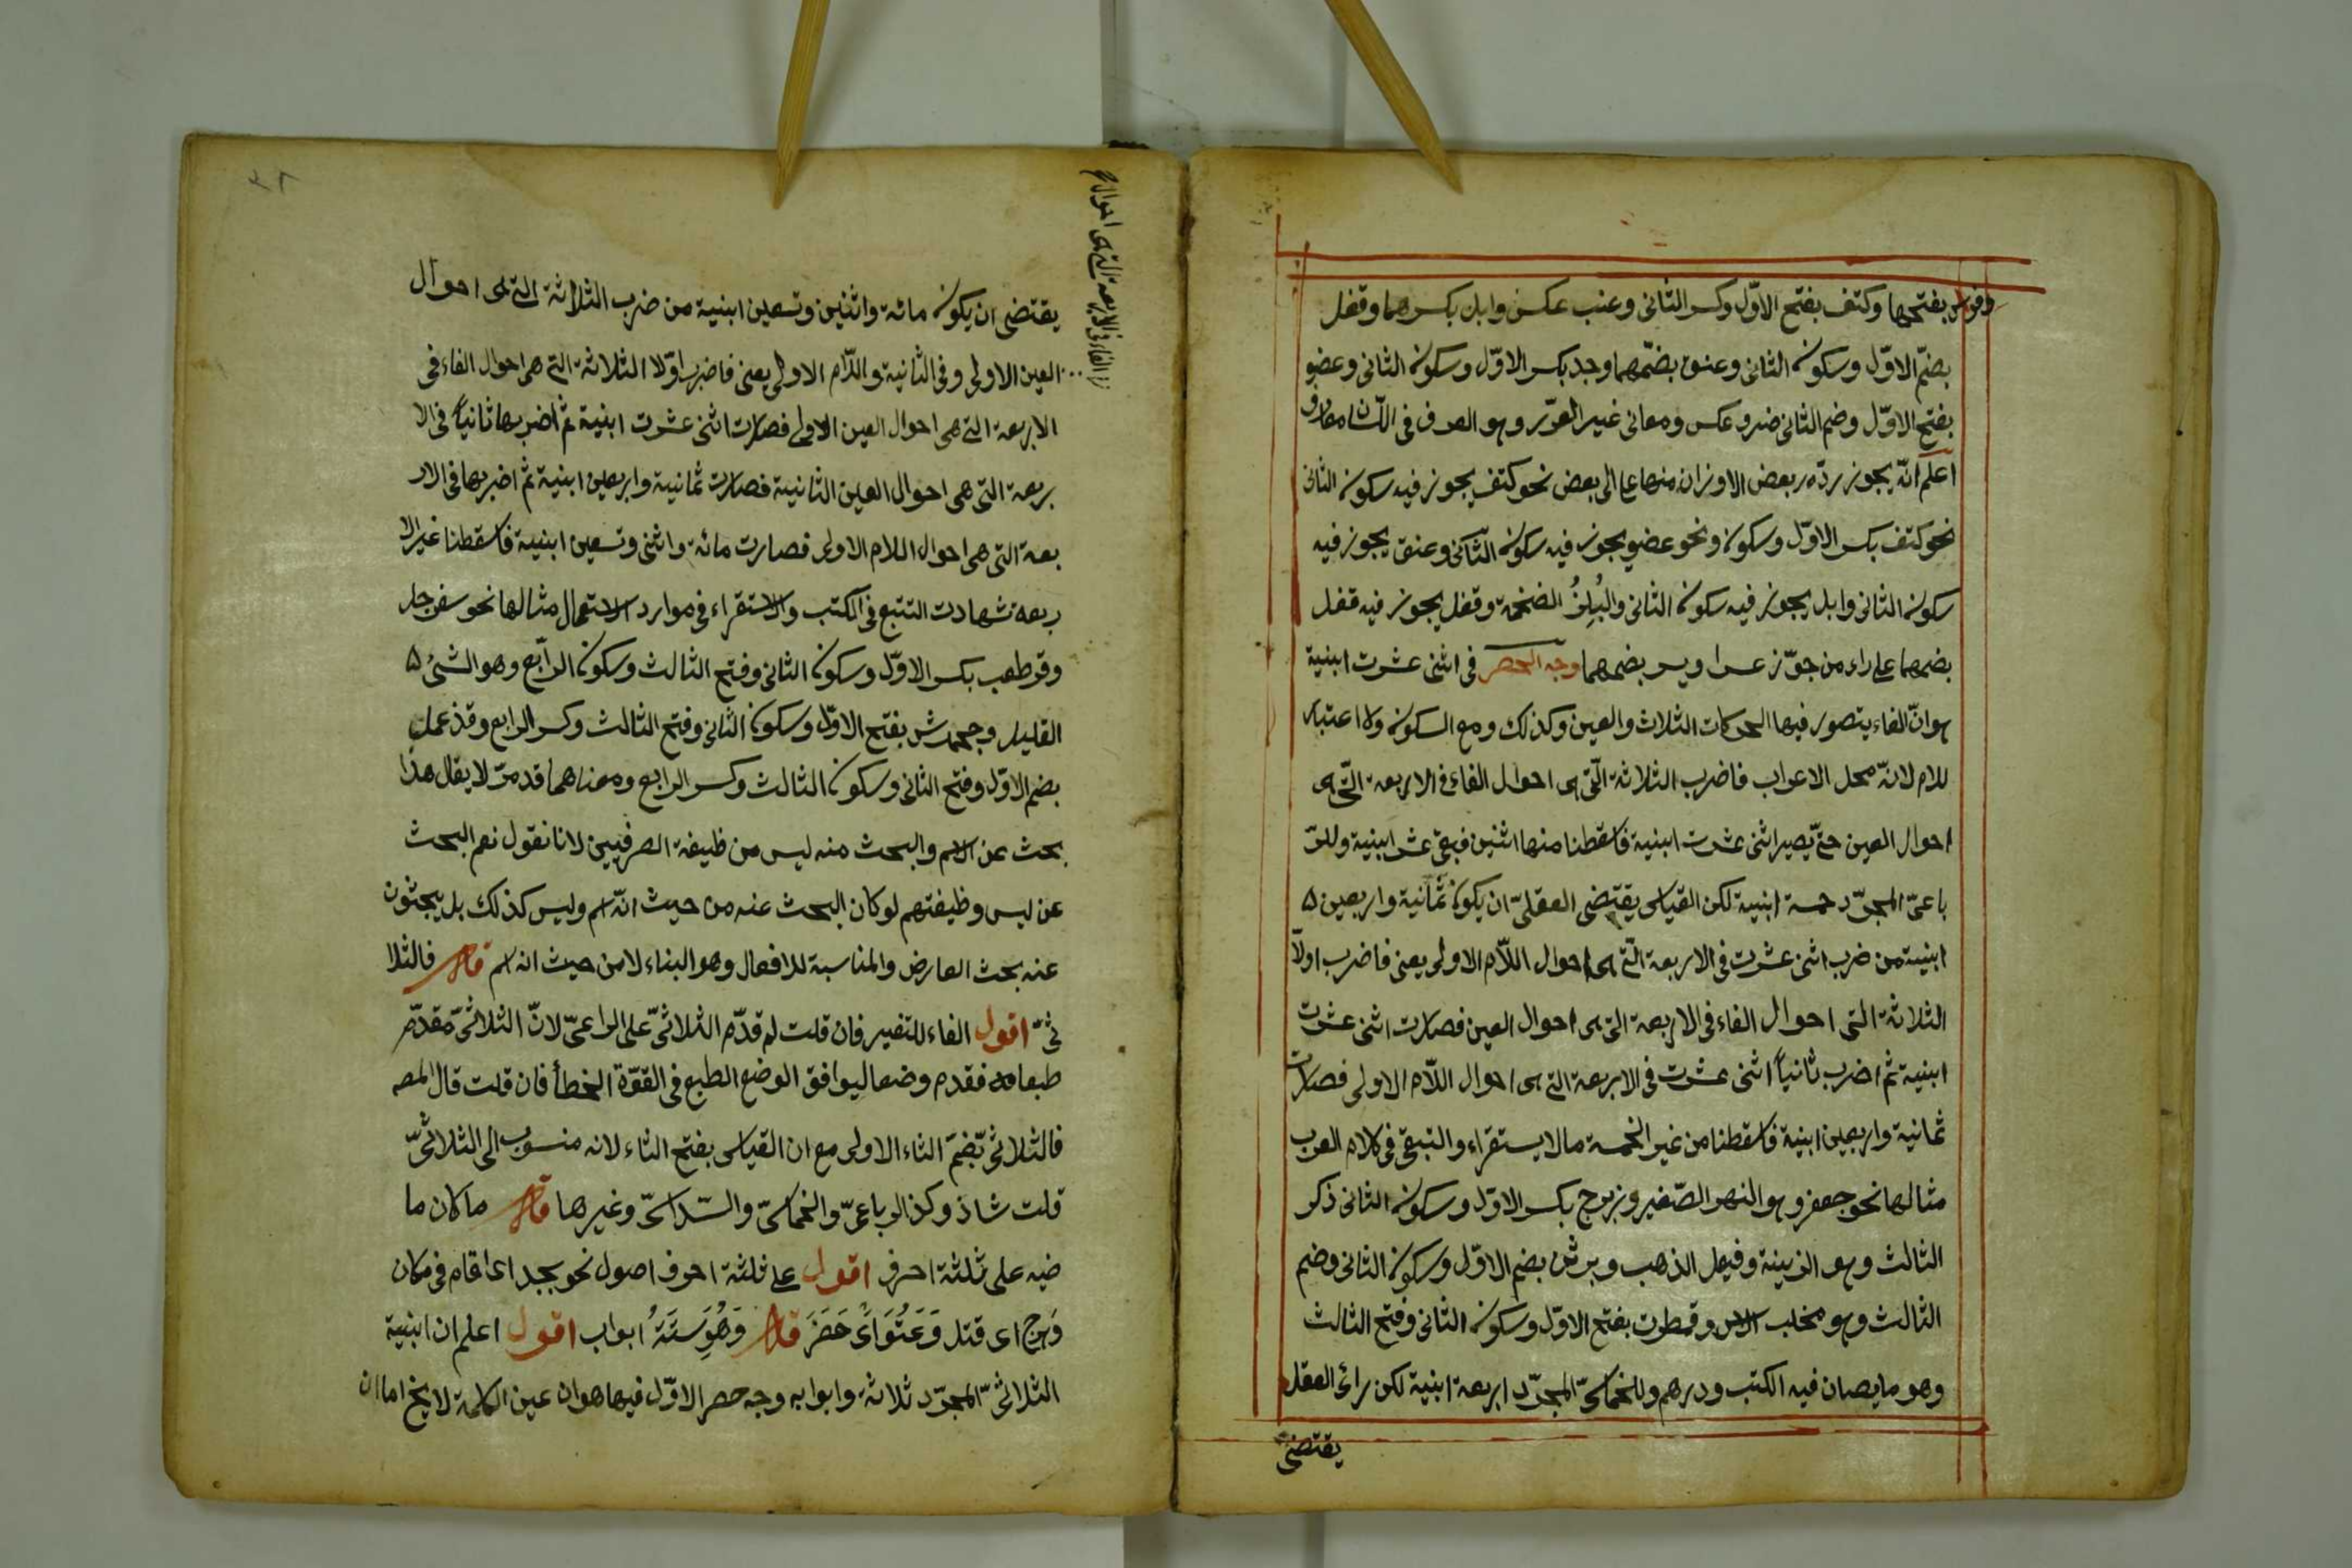 وفرس بفتحها وكتف بفتح الاوّل وكسر الثانى وعنب عكس وابل بكسرهما وقفل
بضمّ الاوّل وسكون الثانى وعنق بضمّهما وجد بكسر الاوّل وسكون الثانى وعضو
بفتح الاوّل وضم الثانى ومعانى غير وهو الصرف فى
اعلم انّه يجوز ردّه بعض الاوزان منها الى بعض نحو كتف يجوز فيه سكون الثانى
نحو كتف بكسر الاوّل وسكون ونحو عضو يجوز فيه سكون الثانى وعنق يجوز فيه
سكون الثانى وابل يجوز فيه سكون الثانى والبلز الضخمة وقفل يجوز فيه قفل
بضمهما على راء من جوّز عسرا ويسر بضمهما وجه الحصر فى اثنى عشرت ابنية
هو انّ الفاء يتصور فيها الحركات الثلاث والعين وكذلك ومع السكون ولا اعتبار
للام لانّه محل الاعراب فاضرب الثلاثة الّتى هى احوال الفاء فى الاربعة الّتى هى
احوال العين حتّى يصير اثنى عشرت ابنية فاسقطنا منها اثنين فبقى عشر ابنية وللرّ
باعىّ المجرّد خمسة ابنية لكن القياس يقتضى العقلىّ ان يكون ثمانية واربعين ۵
ابنية من ضرب اثنى عشرت فى الاربعة الّتى هى احوال اللاّم الاولى يعنى فاضرب اولاً
الثلاثة التى احوال الفاء فى الاربعة التى هى احوال العين فصارت اثنى عشرت
ابنية ثم اضرب ثانياً اثنى عشرت فى الاربعة التى هى احوال اللاّم الاولى فصارت
ثمانية واربعين ابنية فاسقطنا من غير الخمسة مالا يستقراء والتبقى فى كلام العرب
مثالها نحو جعفر وهو النهر الصّغير وزبرج بكسر الاوّل وسكون الثانى ذكر
الثالث وهو الزينة وقيل الذهب وبرثن بضم الاوّل وسكون الثانى وضم
الثالث وهو مخلب الاسد وقمطرت بفتح الاوّل وسكون الثانى وفتح الثالث
وهو ما يصان فيه الكتب ودرهم وللخماسىّ المجرّد اربعة ابنية لكن رائ العقل
يقتضى
يقتضى ان يكون مائة واثنين وتسعين ابنية من ضرب الثلاثة التى هى احوال
الفاء فى الاربعة التى هى احوال
العين الاولى وفى الثانية واللاّم الاولى يعنى فاضرب اوّلا الثلاثة التى هى احوال الفاء فى
الاربعة التى هى احوال العين الاولى فصارت اثنى عشرت ابنية ثم اضربها ثانياً فى الا
ربعة التى هى احوال العين الثانية فصارت ثمانية واربعين ابنية ثم اضربها فى الار
بعة التى هى احوال اللام الاولى فصارت مائة واثنى وتسعين ابنية فاسقطنا غير الا
ربعة شهادت التتبع فى الكتب والاستقراء فى موارد الاستعمال مثالها نحو سفرجل
وقرطعب بكسر الاوّل وسكون الثانى وفتح الثالث وسكون الرابع وهو الشئ ۵
القليل وجحمرش بفتح الاوّل وسكون الثانى وفتح الثالث وكسر الرابع وقذعمل
بضم الاوّل وفتح الثانى وسكون الثالث وكسر الرابع ومعناهما قد مرّ لا يقال هذا
بحث عن الاسم والبحث منه ليس من ظيفة الصرفيين لانا نقول نعم البحث
عن ليس وظيفتهم لو كان البحث عنه من حيث انّه اسم وليس كذلك بل يبحثون
عنه بحث العارض والمناسبة للافعال وهو البناء لا من حيث انه اسم قال فالثلا
ثىّ اقول الفاء للتفسير فان قلت لم قدّم الثلاثىّ على الراعىّ لانّ الثلاثىّ مقدّم
طبعا فقدم وضعا ليوافق الوضع الطبع فى القوّة الخطأ فان قلت قال المصـ
فالثلاثى بضمّ الثاء الاولى مع ان القياس بفتح الثاء لانه منسوب الى الثلاثىّ
قلت شاذ وكذا الرباعىّ والخماسىّ والسّداسىّ وغيرها قال ما كان ما
ضيه على ثلثة احرف اقول على ثلثة احرف اصول نحو بجد اى اقام فى مكان
وهرج اى قتل وَعَثَوَ اى حَضَرَ قال وَهُوَ سِتَّةُ ابواب اقول اعلم ان ابنية
الثلاثىّ المجرّد ثلاثة وابوابه وجه حصر الاوّل فيها هو ان عين الكلمة لا يخ اما ان